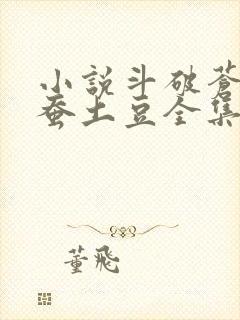 小説斗破蒼
蚕土豆全集
董飛